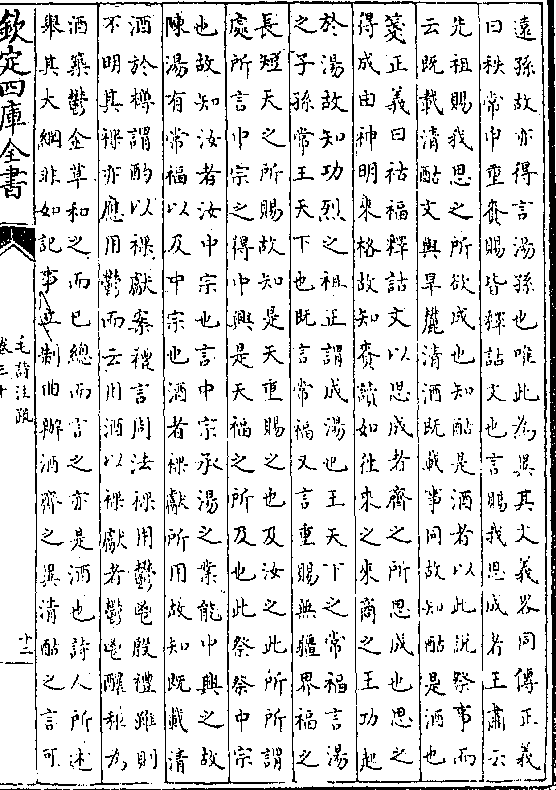 遠孫故亦得言湯孫也唯此為異其文義畧同傳正義
曰秩常申重賚賜皆釋詁文也言賜我思成者王肅云
先祖賜我思之所欲成也知酤是酒者以此說祭事而
云既載清酤文與旱麓清酒既載事同故知酤是酒也
箋正義曰祜福釋詁文以思成者齊之所思成也思之
得成由神明來格故知賚讀如往來之來商之王功起
於湯故知功烈之祖正謂成湯也王天下之常福言湯
之子孫常王天下也既言常福又言重賜無疆界福之
長短天之所賜故知是天重賜之也及汝之此所所謂
處所言中宗之得中興是天福之所及也此祭祭中宗
也故知汝者汝中宗也言中宗承湯之業能中興之故
陳湯有常福以及中宗也酒者祼獻所用故知既載清
酒於樽謂酌以祼獻案禮言周法祼用鬱鬯殷禮雖則
不明其祼亦應用鬱而云用酒以祼獻者鬱鬯釀秬為
酒築鬱金草和之而已總而言之亦是酒也詩人所述
舉其大綱非如記事立制曲辦酒齊之異清酤之言可
欽定四庫全書
毛詩注疏
卷三十
十二